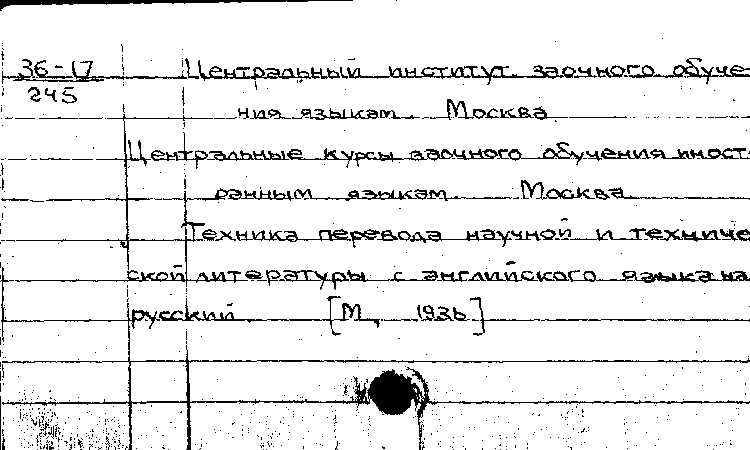 36-17 Центральный институт заочного обуче-
245
ния языкам. Москва
Центральные курсы заочного обучения иност-
ранным языкам. Москва.
Техника перевода научной и техниче-
ской литературы с английского языка на
русский. [М, 1936]